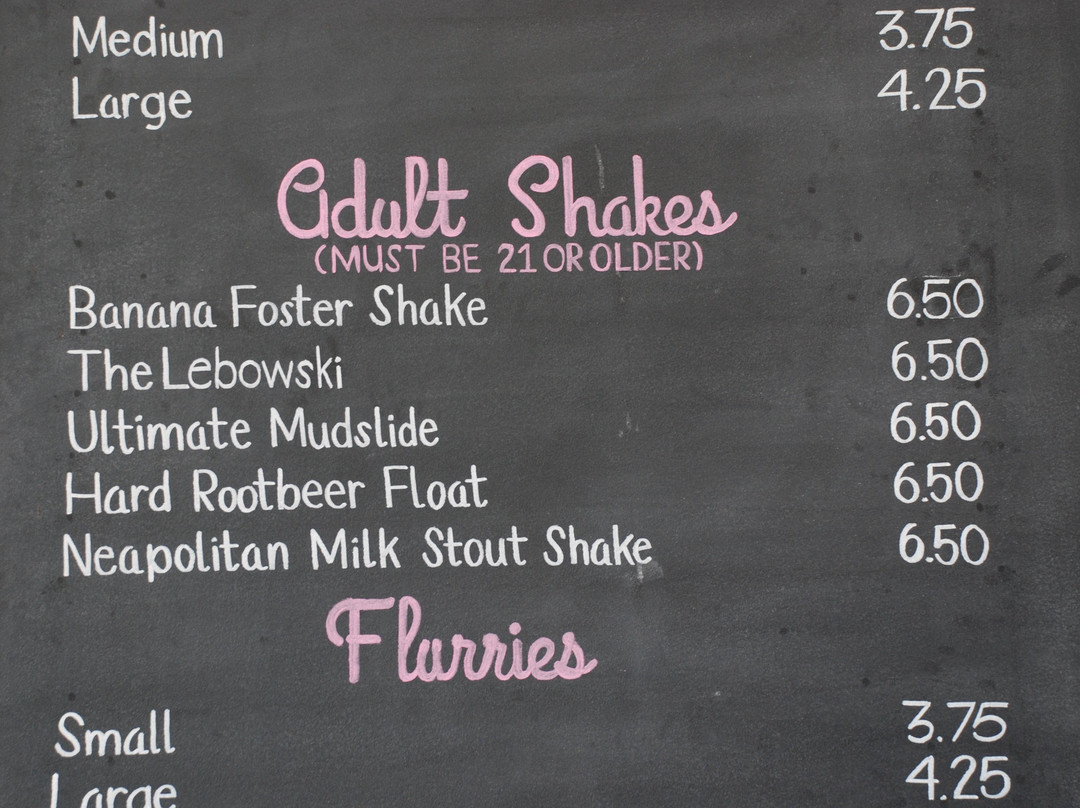 Medium 3.75
Large 4.25
Adult Shakes
(MUST BE 21 OR OLDER)
Banana Foster Shake 6.50
The Lebowski 6.50
Ultimate Mudslide 6.50
Hard Rootbeer Float 6.50
Neapolitan Milk Stout Shake 6.50
Flurries
Small 3.75
Large 4.25